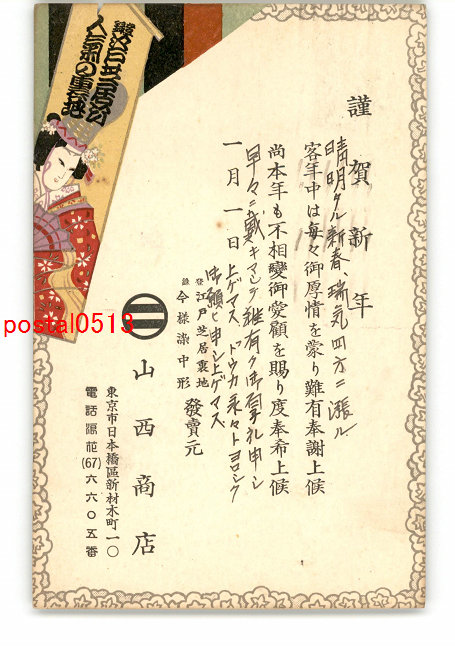 謹賀新年
晴明タル新春、瑞気四方ニ漲ル
客年中は毎々御厚情を蒙り難有奉謝上候
尚本年も不相變御愛顧を賜り度奉希上候
早々ニ戴キマシテ難有ク御厚礼申シ
上ゲマス ドウカ永々トヨロシク
御願ヒ申シ上ゲマス
一月一日
登録 江戸芝居裏地
今様染中形
發賣元
山西商店
東京市日本橋區新材木町一〇
電話浪花(67)六六〇五番
人気の裏地
postal0513